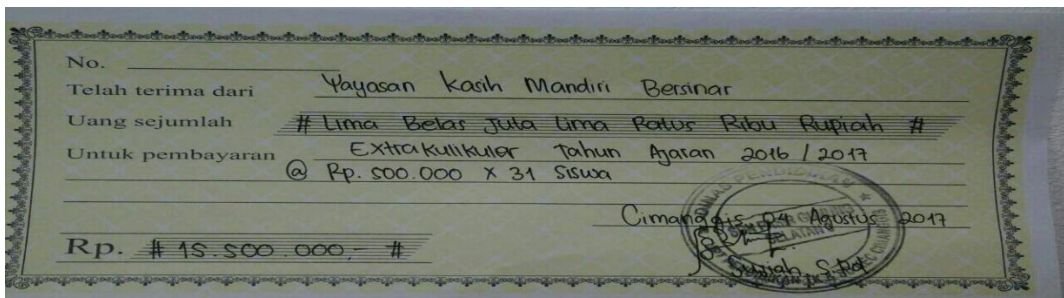 No.
Telah terima dari Yayasan Kasih Mandiri Bersinar
Uang sejumlah # Lima Belas Juta Lima Ratus Ribu Rupiah #
Untuk pembayaran Extrakulikuler Tahun Ajaran 2016 / 2017
@ Rp. 500.000 x 31 Siswa
Cimanggis, 04 Agustus 2017
Rp. # 15.500.000,- #
S.Pd